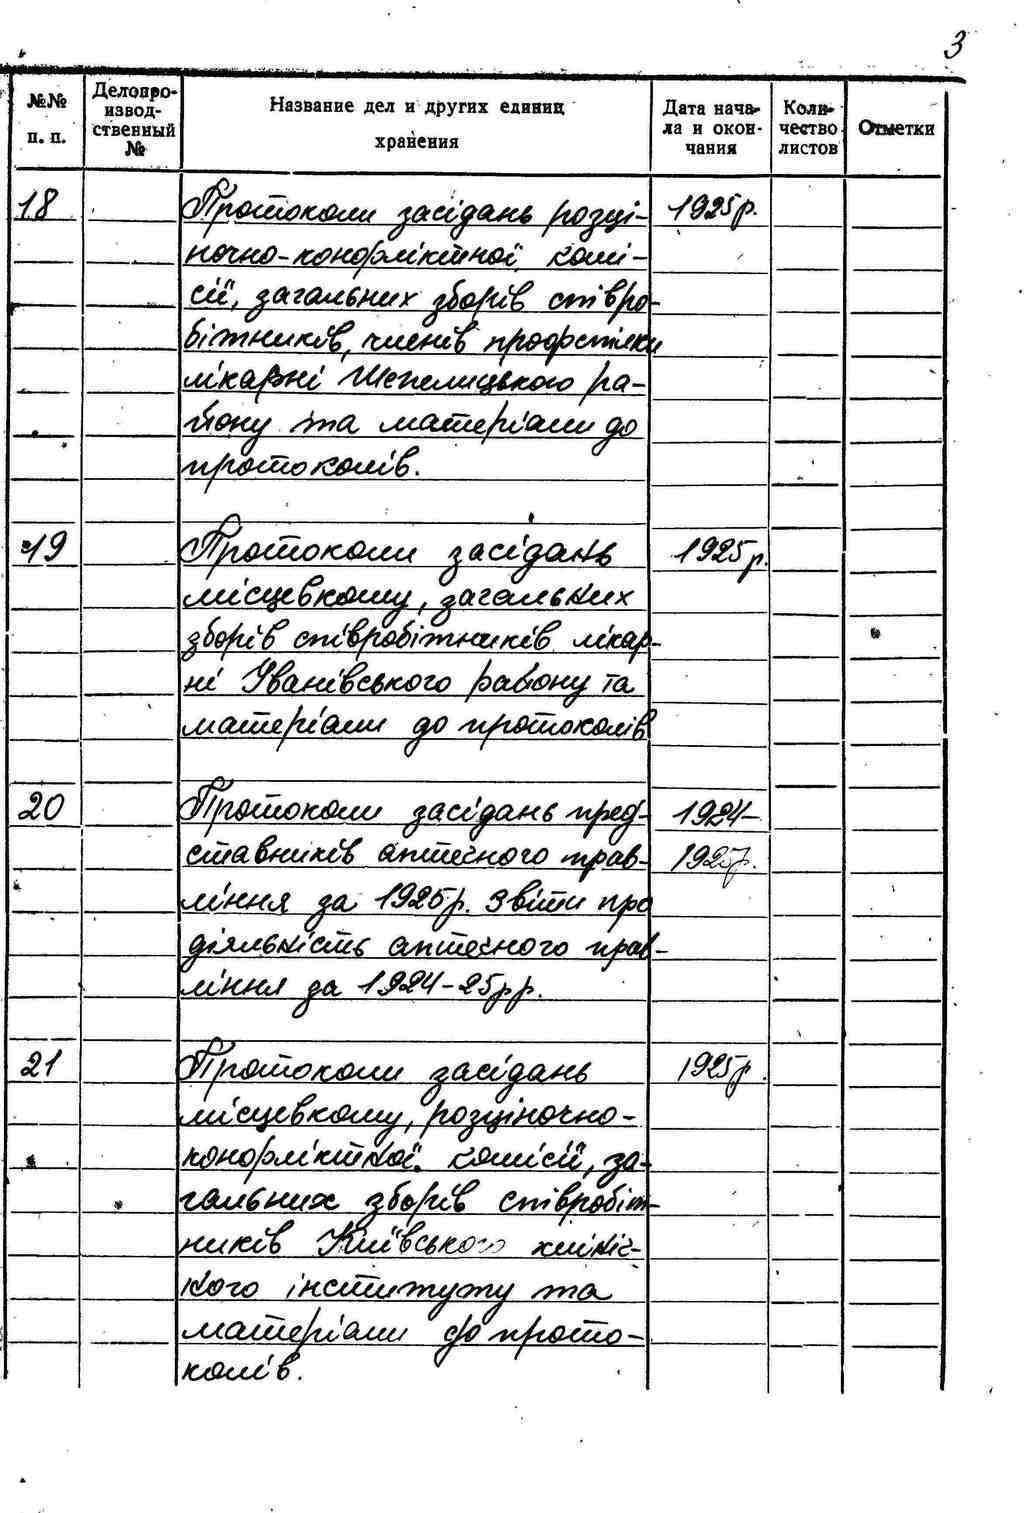 3
№№ п. п.
Делопро-
извод-
ственный
№
Название дел и других единиц
хранения
Дата нача-
ла и окон-
чания
Коли-
чество
листов
Отметки
18 Протоколи засідань розці- 1925р.
ночно-конфліктної комі-
сії, загальних зборів співро-
бітників, членів профспілки
лікарні Шепелицького ра-
йону та матеріали до
протоколів.
19 Протоколи засідань 1925р.
місцевкому, загальних
зборів співробітників лікар-
ні Іванівського району та
матеріали до протоколів
20 Протоколи засідань пред- 1924-
ставників аптечного прав- 1925р.
ління за 1925р. Звіти про
діяльність аптечного прав-
ління за 1924-25рр.
21 Протоколи засідань 1925р.
місцевкому, розціночно-
конфліктної комісії, за-
гальних зборів співробіт-
ників Київського клініч-
ного інституту та
матеріали до прото-
колів.